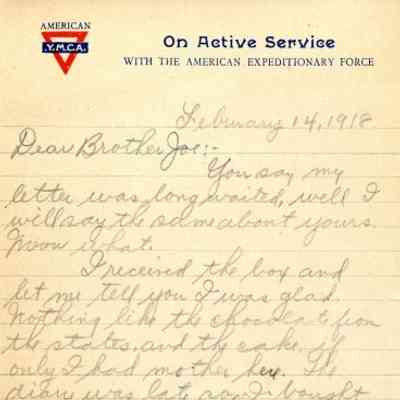 AMERICAN
Y.M.C.A.
On Active Service
WITH THE AMERICAN EXPEDITIONARY FORCE
February 14, 1918
Dear Brother Joe:-
You say my
letter was long waited, well I
will say the same about yours.
what.
I received the box and
let me tell you I was glad.
Nothing like the chocolate from
the states, and the cake, if
only I had mother here. The
diary was late so I bought